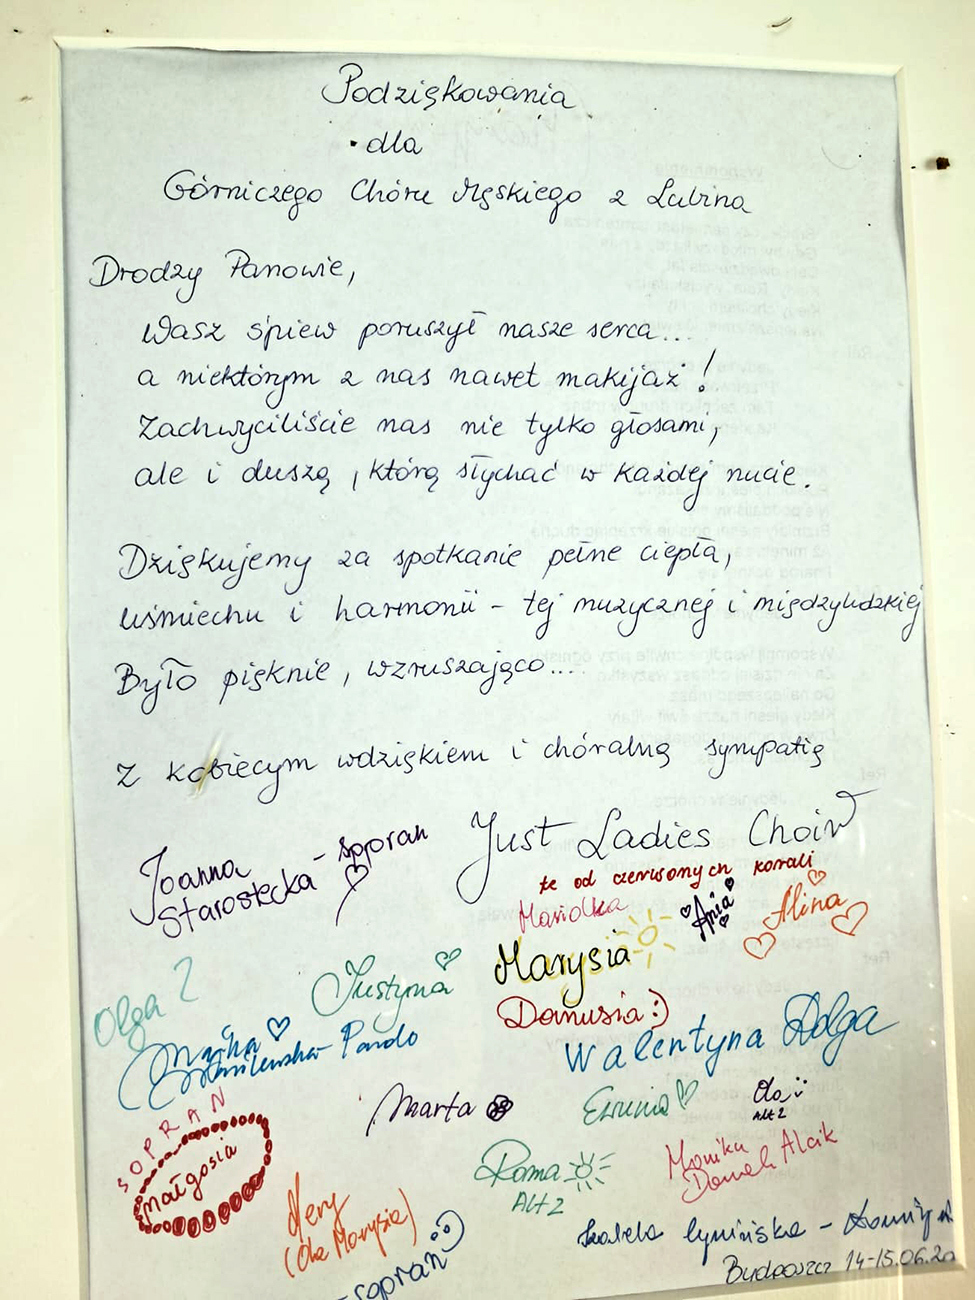 Podziękowania
dla
Górniczego Chóru Męskiego z Lubina
Drodzy Panowie,
Wasz śpiew poruszył nasze serca...
a niektórym z nas nawet makijaż!
Zachwyciliście nas nie tylko głosami,
ale i duszą, którą słychać w każdej nucie.
Dziękujemy za spotkanie pełne ciepła,
uśmiechu i harmonii - tej muzycznej i międzyludzkiej
Było pięknie, wzruszająco....
Z kobiecym wdziękiem i chóralną sympatią
Just Ladies Choir
te od czerwonych korali
Joanna
Starostecka - sopran
Mariolka
Ania
Alina
Marysia
Olga 2
Justyna
Danusia :)
Pando
Walentyna Dolga
Marta
Ola
Alt 2
SOPRAN
Małgosia
Roma
Alt 2
Monika
Mery
(dla Marysia)
- sopran
Bydgoszcz 14-15.06.20